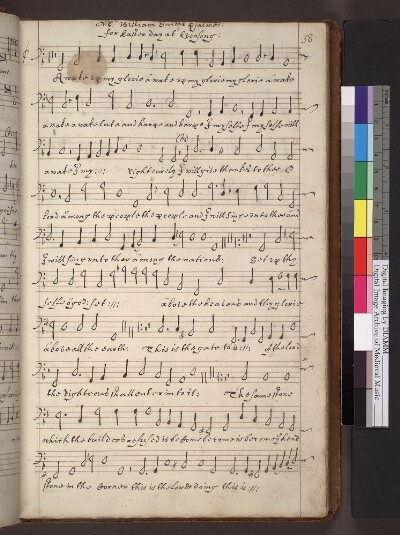 Mr William Smiths psalmes
for Easter day at Evensong.
38
Awake up my glorie awake up my glorie my glorie awake
awake awake lute and harpe and harpe I my selfe I my selfe will
awake I my :||: right early I will give thankes to thee O
lord among the people the people and I will sing unto thee and
I will sing unto thee among the nations. Set up thy
selfe o god: set :||: above the heavens and thy glorie
above all the earth. This is the gate this :||: of the lord
the righteous shall enter into it: The same stone
which the builders refused is become become is become y head
stone in the corner this is the lords doing this is :||:
Digital Imaging by DIAMM
Digital Image Archive of Medieval Music